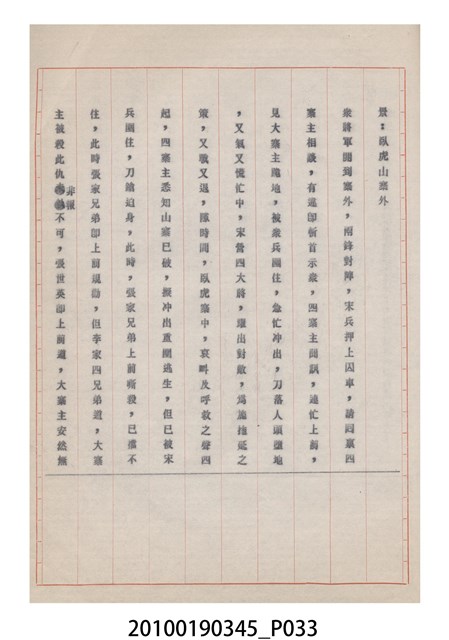 景：臥虎山寨外
眾將軍開到寨外，兩鋒對陣，宋兵押上囚車，請四寨四
寨主相談，有違即斬首示眾，四寨主面飄，連忙上前，
見大寨主隨地，被眾兵圍住，急忙冲出，刀落人頭墮地
，又氣又慌忙中，宋營四大將，躍出對敵，為施拖延之
策，又戰又退，隨時間，臥虎寨中，哀叫及呼救之聲四
起，四寨主悉知山寨已破，擬冲出重圍逃生，但已被宋
兵圍住，刀鎗迫身，此時，張家兄弟上前斬殺，已擋不
住，此時張家兄弟即上前規勸，但李家四兄弟道，大寨
主被殺此仇非報不可，張世英即上前道，大寨主安然無
20100190345_P033